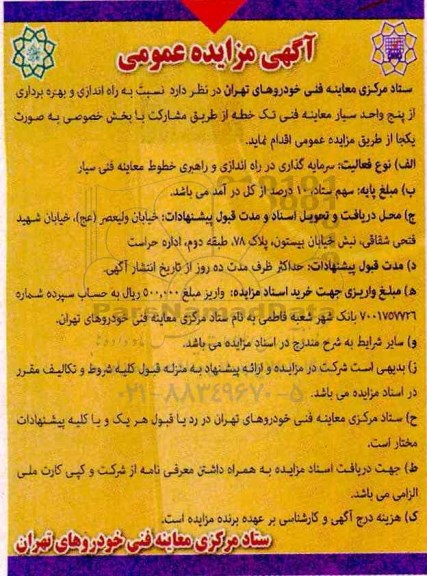 آگهی مزایده عمومی
ستاد مرکزی معاینه فنی خودروهای تهران در نظر دارد نسبت به راه اندازی و بهره برداری
از پنج واحد سیار معاینه فنی تک خطه از طریق مشارکت با بخش خصوصی به صورت
یکجا از طریق مزایده عمومی اقدام نماید.
الف) نوع فعالیت: سرمایه گذاری در راه اندازی و راهبری خطوط معاینه فنی سیار
ب) مبلغ پایه: سهم ستاد، ۱۰ درصد از کل در آمد می باشد.
ج) محل دریافت و تحویل اسناد و مدت قبول پیشنهادات: خیابان ولیعصر (عج)، خیابان شهید
فتحی شقاقی، نبش خیابان بیستون، پلاک ۷۸، طبقه دوم، اداره حراست
د) مدت قبول پیشنهادات: حداکثر ظرف مدت ده روز از تاریخ انتشار آگهی.
ه) مبلغ واریزی جهت خرید اسناد مزایده: واریز مبلغ ۵۰۰,۰۰۰ ریال به حساب سپرده شماره
۷۰۰۱۷۵۷۷۲۶ بانک شهر شعبه فاطمی به نام ستاد مرکزی معاینه فنی خودروهای تهران.
و) سایر شرایط به شرح مندرج در اسناد مزایده می باشد.
ز) بدیهی است شرکت در مزایده و ارائه پیشنهاد به منزله قبول کلیه شروط و تکالیف مقرر
در اسناد مزایده می باشد.
ح) ستاد مرکزی معاینه فنی خودروهای تهران در رد یا قبول هر یک و یا کلیه پیشنهادات
مختار است.
ط) جهت دریافت اسناد مزایده به همراه داشتن معرفی نامه از شرکت و کپی کارت ملی
الزامی می باشد.
ک) هزینه درج آگهی و کارشناسی بر عهده برنده مزایده است.
ستاد مرکزی معاینه فنی خودروهای تهران
۰۲۱-۸۸۳۴۹۶۷۰-۵